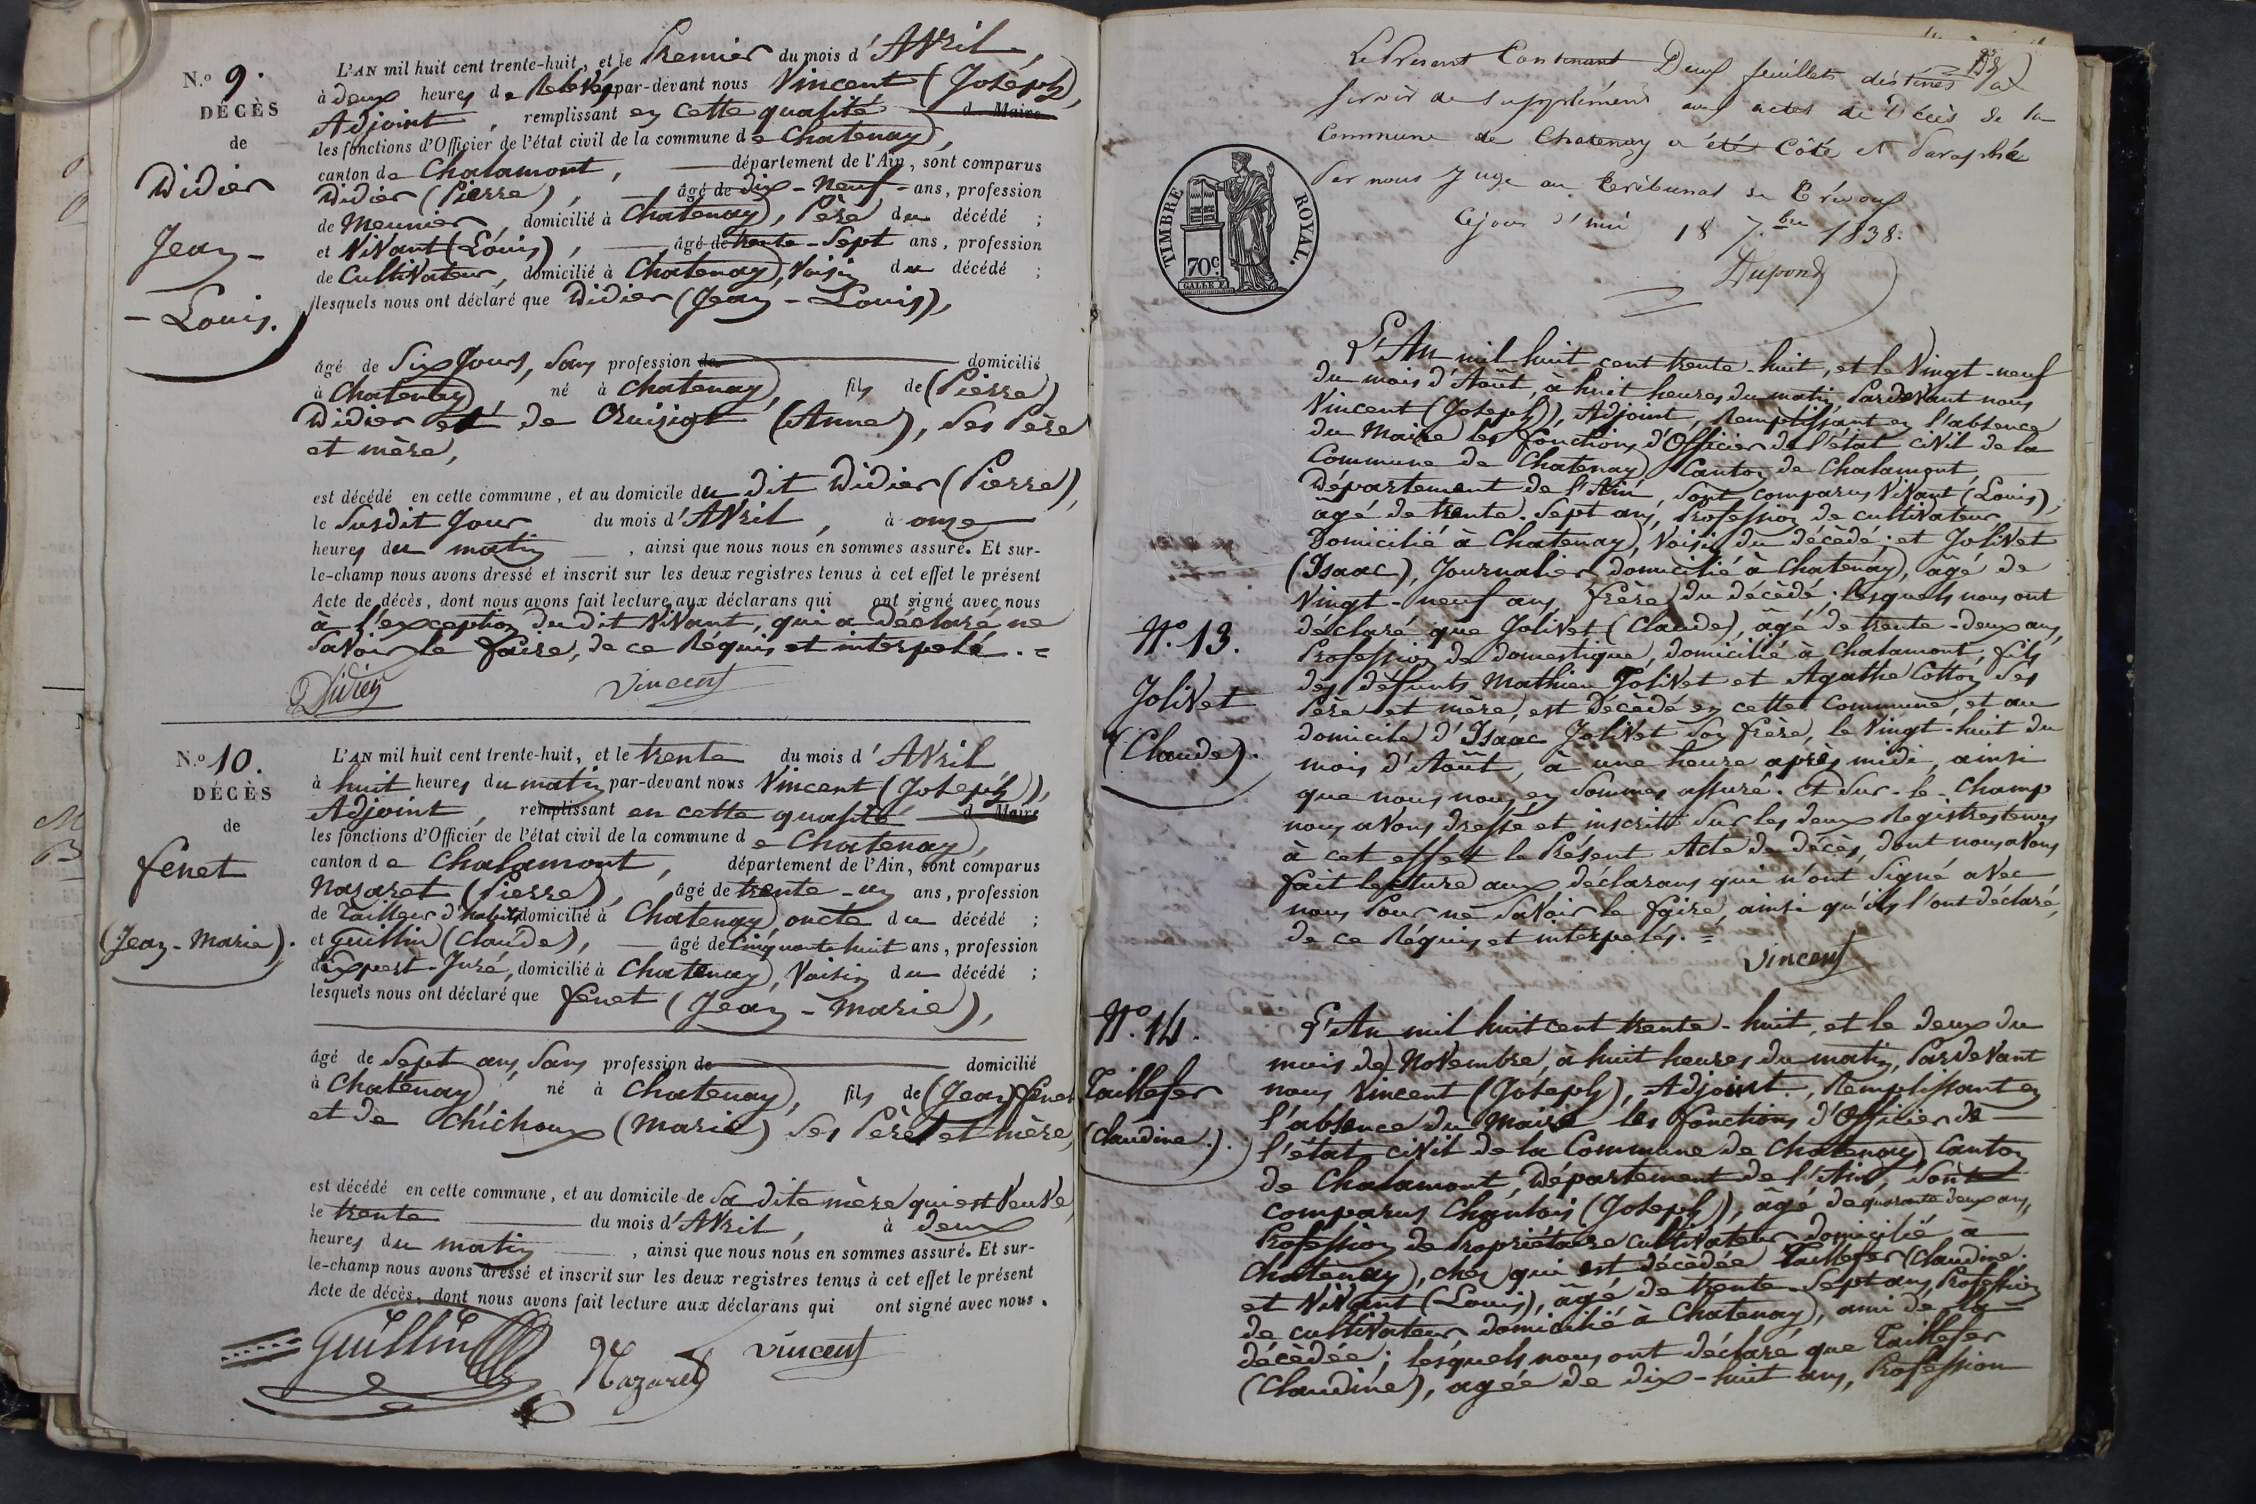 N.º 9.
DÉCÈS
de
Didier
Jean-
-Louis.
L'AN mil huit cent trente-huit, et le Premier du mois d'Avril,
à deux heures de Relevé, par-devant nous Vincent (Joseph),
Adjoint, remplissant en cette qualité d Maire
les fonctions d'Officier de l'état civil de la commune de Chatenay,
canton de Chalamont, département de l'Ain, sont comparus
Didier (Pierre), âgé de dix-neuf ans, profession
de Meunier, domicilié à Chatenay, Père du décédé ;
et Vivant (Louis), âgé de trente-sept ans, profession
de Cultivateur, domicilié à Chatenay, Voisin du décédé ;
lesquels nous ont déclaré que Didier (Jean-Louis),
âgé de Six Jours, Sans profession de domicilié
à Chatenay, né à Chatenay, fils de (Pierre)
Didier et de Cruisiat (Anne), Ses Père
et mère,
est décédé en cette commune, et au domicile du dit Didier (Pierre),
le Susdit Jour du mois d'Avril, à onze
heures du matin, ainsi que nous nous en sommes assuré. Et sur-
le-champ nous avons dressé et inscrit sur les deux registres tenus à cet effet le présent
Acte de décès, dont nous avons fait lecture aux déclarans qui ont signé avec nous
à l'exception du dit Vivant, qui a déclaré ne
Savoir le faire, de ce Réquis et interpelé. =
Didier Vincent
N.º 10.
DÉCÈS
de
fenet
(Jean-Marie).
L'AN mil huit cent trente-huit, et le trente du mois d'Avril
à huit heures du matin par-devant nous Vincent (Joseph),
Adjoint, remplissant en cette qualité d Maire
les fonctions d'Officier de l'état civil de la commune de Chatenay,
canton de Chalamont, département de l'Ain, sont comparus
Nazaret (Pierre), âgé de trente-un ans, profession
de Tailleur d'habits, domicilié à Chatenay, oncte du décédé ;
et Guillin (Claude), âgé de Cinquante huit ans, profession
d'Expert-Juré, domicilié à Chatenay, Voisin du décédé ;
lesquels nous ont déclaré que fenet (Jean-Marie),
âgé de Sept ans, Sans profession de domicilié
à Chatenay, né à Chatenay, fils de (Jean) fenet
et de Chichoux (Marie) Ses Père et mère,
est décédé en cette commune, et au domicile de Sa dite mère qui est Veuve,
le trente du mois d'Avril, à deux
heures du matin, ainsi que nous nous en sommes assuré. Et sur-
le-champ nous avons dressé et inscrit sur les deux registres tenus à cet effet le présent
Acte de décès, dont nous avons fait lecture aux déclarans qui ont signé avec nous.
Guillin Nazaret Vincent
Le Présent Contenant Deux feuillets déstinés à
Servir de Supplément aux actes de Décès de la
Commune de Chatenay a été Côté et Paraphé
Par nous Juge au tribunal de Trévoux
Cejour d'hui 18 7.bre 1838.
Dupond
TIMBRE ROYAL.
70 c.
L'An mil huit cent trente-huit, et le Vingt-neuf
du mois d'Août, à huit heures du matin, Pardevant nous
Vincent (Joseph), Adjoint, Remplissant en l'absence
du Maire les fonctions d'Officier de l'état civil de la
Commune de Chatenay, Canton de Chalamont,
Département de l'Ain, Sont comparus Vivant (Louis),
âgé de trente-Sept ans, Profession de cultivateur
Domicilié à Chatenay, Voisin du décèdé ; et Jolivet
(Isaac), Journalier domicilié à Chatenay, âgé de
Vingt-neuf ans, frère du décèdé ; lesquels nous ont
déclaré que Jolivet (Claude), âgé de trente-deux ans,
Profession de domestique, domicilié à Chalamont, fils
des défunts Mathieu Jolivet et Agathe Cotton Ses
Père et mère, est décèdé en cette Commune, et au
domicile d'Isaac Jolivet Son frère, le Vingt-huit du
mois d'Août, à une heure après midi, ainsi
que nous nous en Sommes assuré. Et Sur-le-Champ
nous avons dressé et inscrit Sur les deux Registres tenus
à cet effet le Présent Acte de décès, dont nous avons
fait lecture aux déclarans qui n'ont Signé avec
nous Pour ne Savoir le faire, ainsi qu'ils l'ont déclaré,
de ce Réquis et interpelés. =
Vincent
N.º 13.
Jolivet
(Claude).
N.º 14.
Taillefer
(Claudine.).
L'An mil huit cent trente-huit, et le deux du
mois de Novembre, à huit heures du matin, Pardevant
nous Vincent (Joseph), Adjoint, Remplissant en
l'absence du Maire les fonctions d'Officier de
l'état civil de la Commune de Chatenay Canton
de Chalamont, Département de l'Ain, Sont
comparus Chantois (Joseph), âgé de quarante deux ans,
Profession de Propriétaire cultivateur domicilié à
Chatenay, chez qui est décèdée Taillefer (Claudine.
et Vivant (Louis), âgé de trente-Sept ans, Profession
de cultivateur domicilié à Chatenay, ami de la
décèdée ; lesquels nous ont déclaré que Taillefer
(Claudine), agée de dix-huit ans, Profession